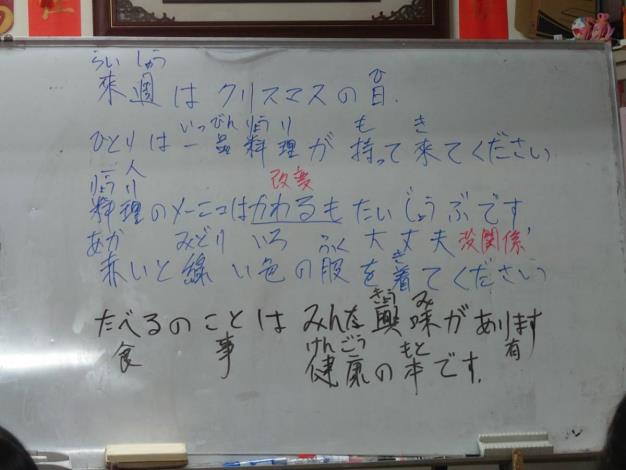 らいしゅう ひ
来週はクリスマスの日.
いっぴんりょうり も き
ひとりは一品料理が持って来てください
一人
りょうり 改変
料理のメーニコはかわるもたいじょうぶです
あか みどり いろ ふく 大丈夫 没関係
赤いと緑い色の服を着てください
き
きょうみ
たべるのことはみんな興味があります
食 事 けんこう もと 有
健康の本です.